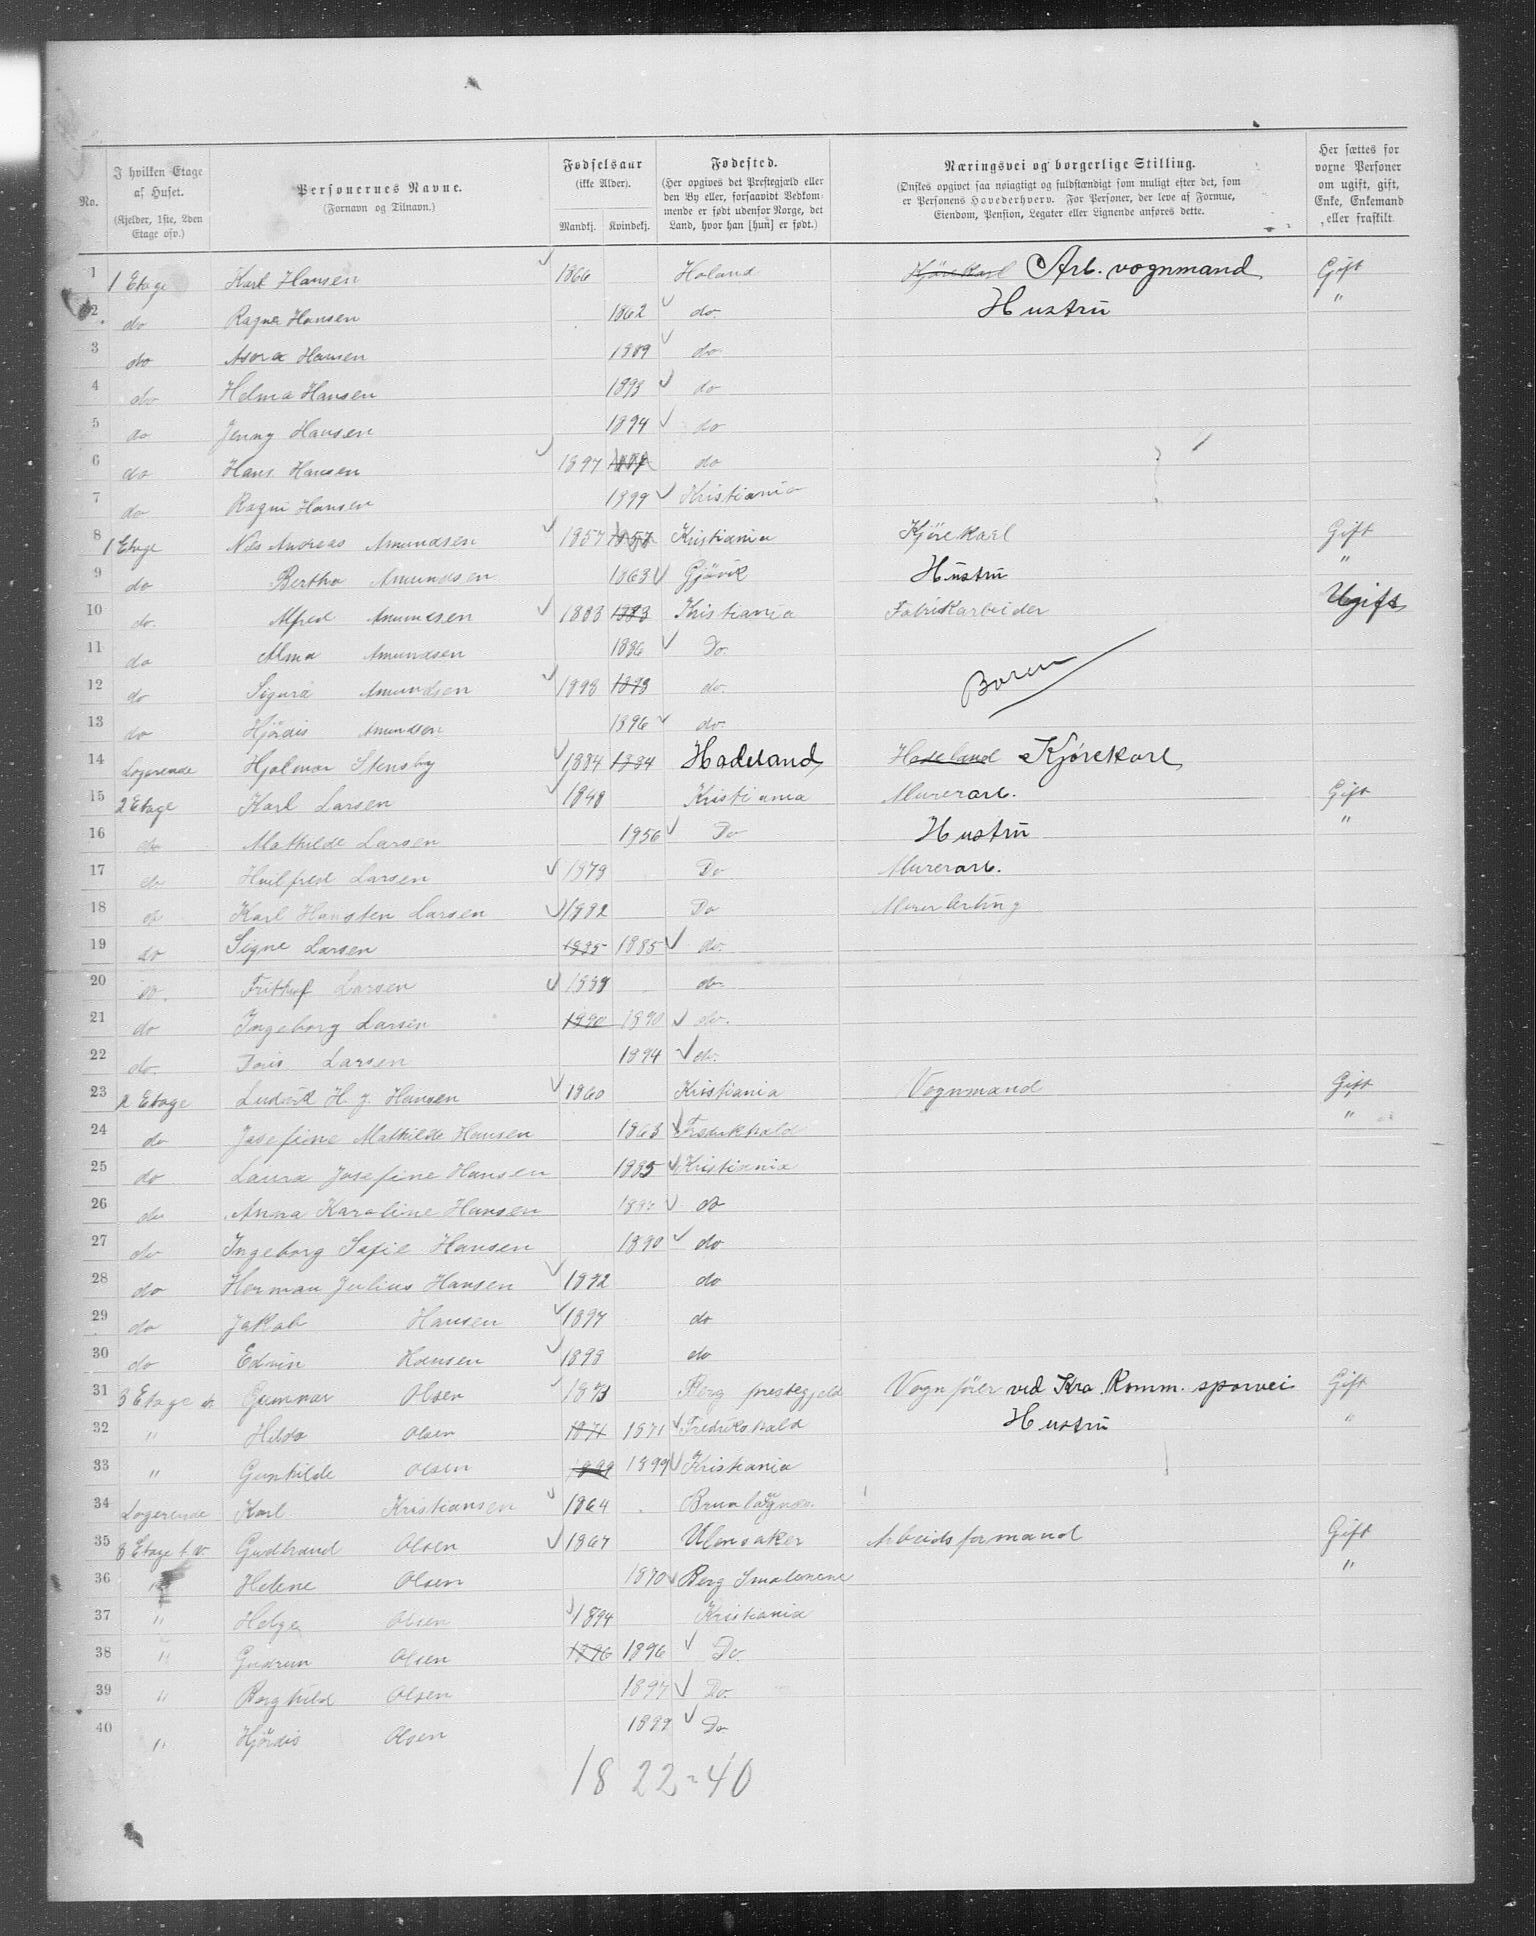 No.
I hvilken Etage af Huset. (Kjelder, 1ste, 2den Etage osv.)
Personernes Navne. (Fornavn og Tilnavn.)
Fødselsaar (ikke Alder). Mandkj. Kvindekj.
Fødested. (Her opgives det Prestegjæld eller den By eller, forsaavidt Vedkommende er født udenfor Norge, det Land, hvor han [hun] er født.)
Næringsvei og borgerlige Stilling. (Ønskes opgivet saa nøiagtigt og fuldstændigt som muligt efter det, som er Personens Hovederhverv. For Personer, der leve af Formue, Eiendom, Pension, Legater eller Lignende anføres dette.
Her sættes for vorne Personer om ugift, gift, Enke, Enkemand eller fraskilt.
1 1 Etage Karl Hansen 1866 Holand Kjørekarl Arb. vognmand Gift
2 do Ragna Hansen 1862 do. Hustru "
3 do Asora Hansen 1889 do
4 do Helma Hansen 1893 do
5 do Jenny Hansen 1894 do
6 do Hans Hansen 1897 do
7 do Ragni Hansen 1899 Kristiania
8 1 Etage Nils Andreas Amundsen 1857 1857 Kristiania Kjørekarl Gift
9 do Bertha Amundsen 1863 Gjövik Hustru "
10 do. Alfred Amundsen 1883 1883 Kristiania Fabrikarbeider Ugift
11 do Alma Amundsen 1886 Do.
12 do Sigurd Amundsen 1893 1893 do. Barn
13 do Hjördis Amundsen 1896 do.
14 Logerende Hjalmar Stensby 1884 1884 Hadeland Hadeland Kjørekarl
15 2 Etage Karl Larsen 1848 Kristiania Murerarb. Gift
16 do Mathilde Larsen 1856 Do Hustru "
17 do Huilfred Larsen 1879 Do Murerarb.
18 do Karl Hansten Larsen 1882 Do Murerlærling
19 do Signe Larsen 1885 1885 do.
20 do. Frithjof Larsen 1888 do.
21 do Ingeborg Larsen 1890 1890 do.
22 do. Doris Larsen 1894 do.
23 2 Etage Ludvik H. J. Hansen 1860 Kristiania Vognmand Gift
24 do Josefine Mathilde Hansen 1863 Fredrikhald "
25 do Laura Josefine Hansen 1885 Kristiania
26 do Anna Karoline Hansen do
27 do Ingeborg Sofie Hansen 1890 do
28 do Herman Julius Hansen 1892 do
29 do Jakob Hansen 1897 do
30 do Edvin Hansen 1898 do
31 3 Etage Gunnar Olsen 1873 Berg prestegjeld Vognfører ved Kra Komm. sporvei Gift
32 " Hilda Olsen 1871 1871 Fredrikshald Hustru "
33 " Gunhilde Olsen 1899 1899 Kristiania
34 Logerende Karl Kristiansen 1864 Brunlagnes.
35 3 Etage t. v. Gudbrand Olsen 1867 Ulensaker Arbeidsformand Gift
36 " Helene Olsen 1870 Berg Smalenene "
37 " Helge Olsen 1894 Kristiania
38 " Gudrun Olsen 1896 1896 Do.
39 " Borghild Olsen 1897 Do.
40 " Hjördis Olsen 1899 Do
18 22 = 40